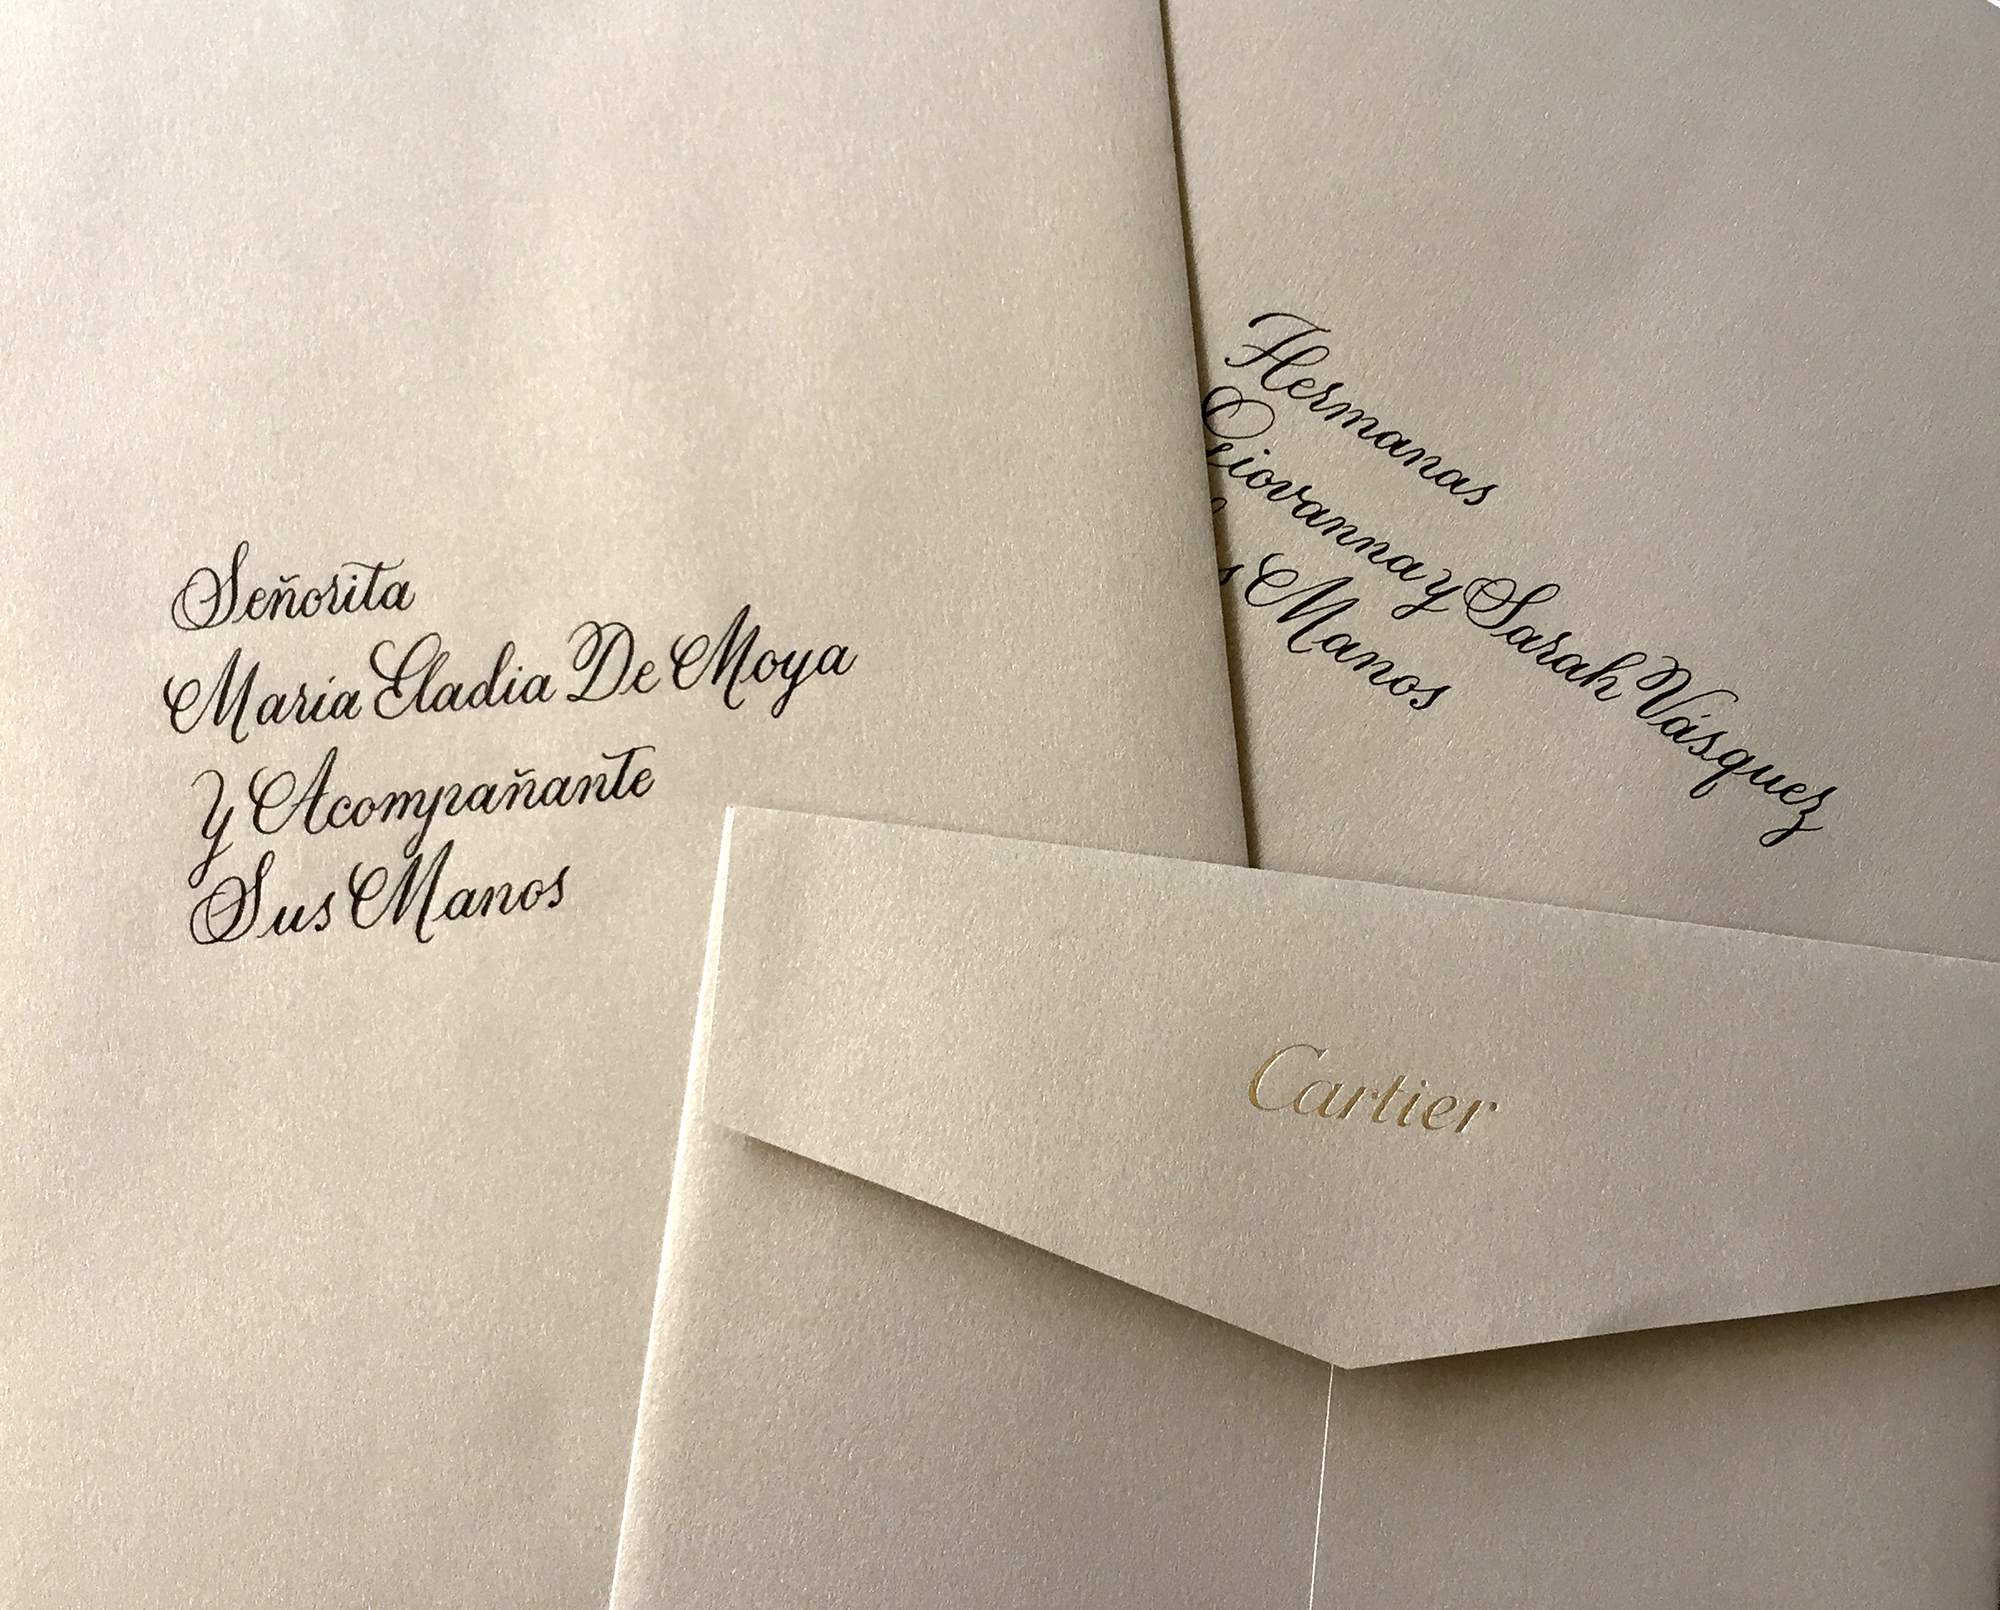 Señorita
María Eladia De Moya
Y Acompañante
Sus Manos
Hermanas
Giovanna y Sarah Vásquez
Manos
Cartier